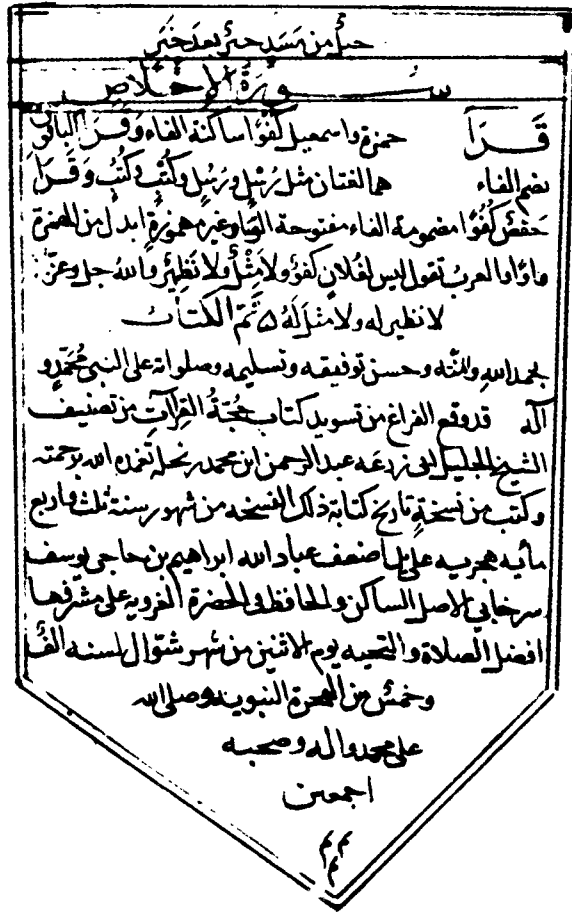 حبلٌ من مسد حبرٌ بعد خبر
سورة الإخلاص
قرأ حمزة واسمعيل كفؤًا ساكنة الفاء وقرأ الباقون
بضم الفاء هما لغتان مثل رُعُبٍ ورُعْبٍ وكُتُبٍ وكُتْبٍ وقرأ
حفص كفوًا مضمومة الفاء مفتوحة الواو غير مهموزةٍ ابدل من الهمزة
واوًا والعرب تقول ليس لفلانٍ كفوٌ ولا مثلٌ ولا نظيرٌ والله جل وعزّ
لا نظير له ولا مثل له ۵ تمّ الكتاب
بحمد الله والمنّه وحسن توفيقه وتسليمه وصلواته على النبي محمدٍ و
آله قد وقع الفراغ من تسويد كتاب حجةُ القراآت من تصنيف
الشيخ الجليل ابى زرعه عبد الرحمن ابن محمد زنجلة تغمده الله برحمته
وكتب من نسخةٍ تاريخ كتابة ذلك النسخه من شهور سنة ثلث واربع
مأيه هجريه على يد اضعف عباد الله ابراهيم بن حاجى يوسف
سرخابي الاصل الساكن والحافظ فى الحضرة الغرويه على مشرّفها
افضل الصلاة والتحيه يوم الاثنين من شهر شوّال لسنه الف
وخمسٌ من الهجرة النبويه وصلى الله
على محمد واله وصحبه
اجمعين
م م م